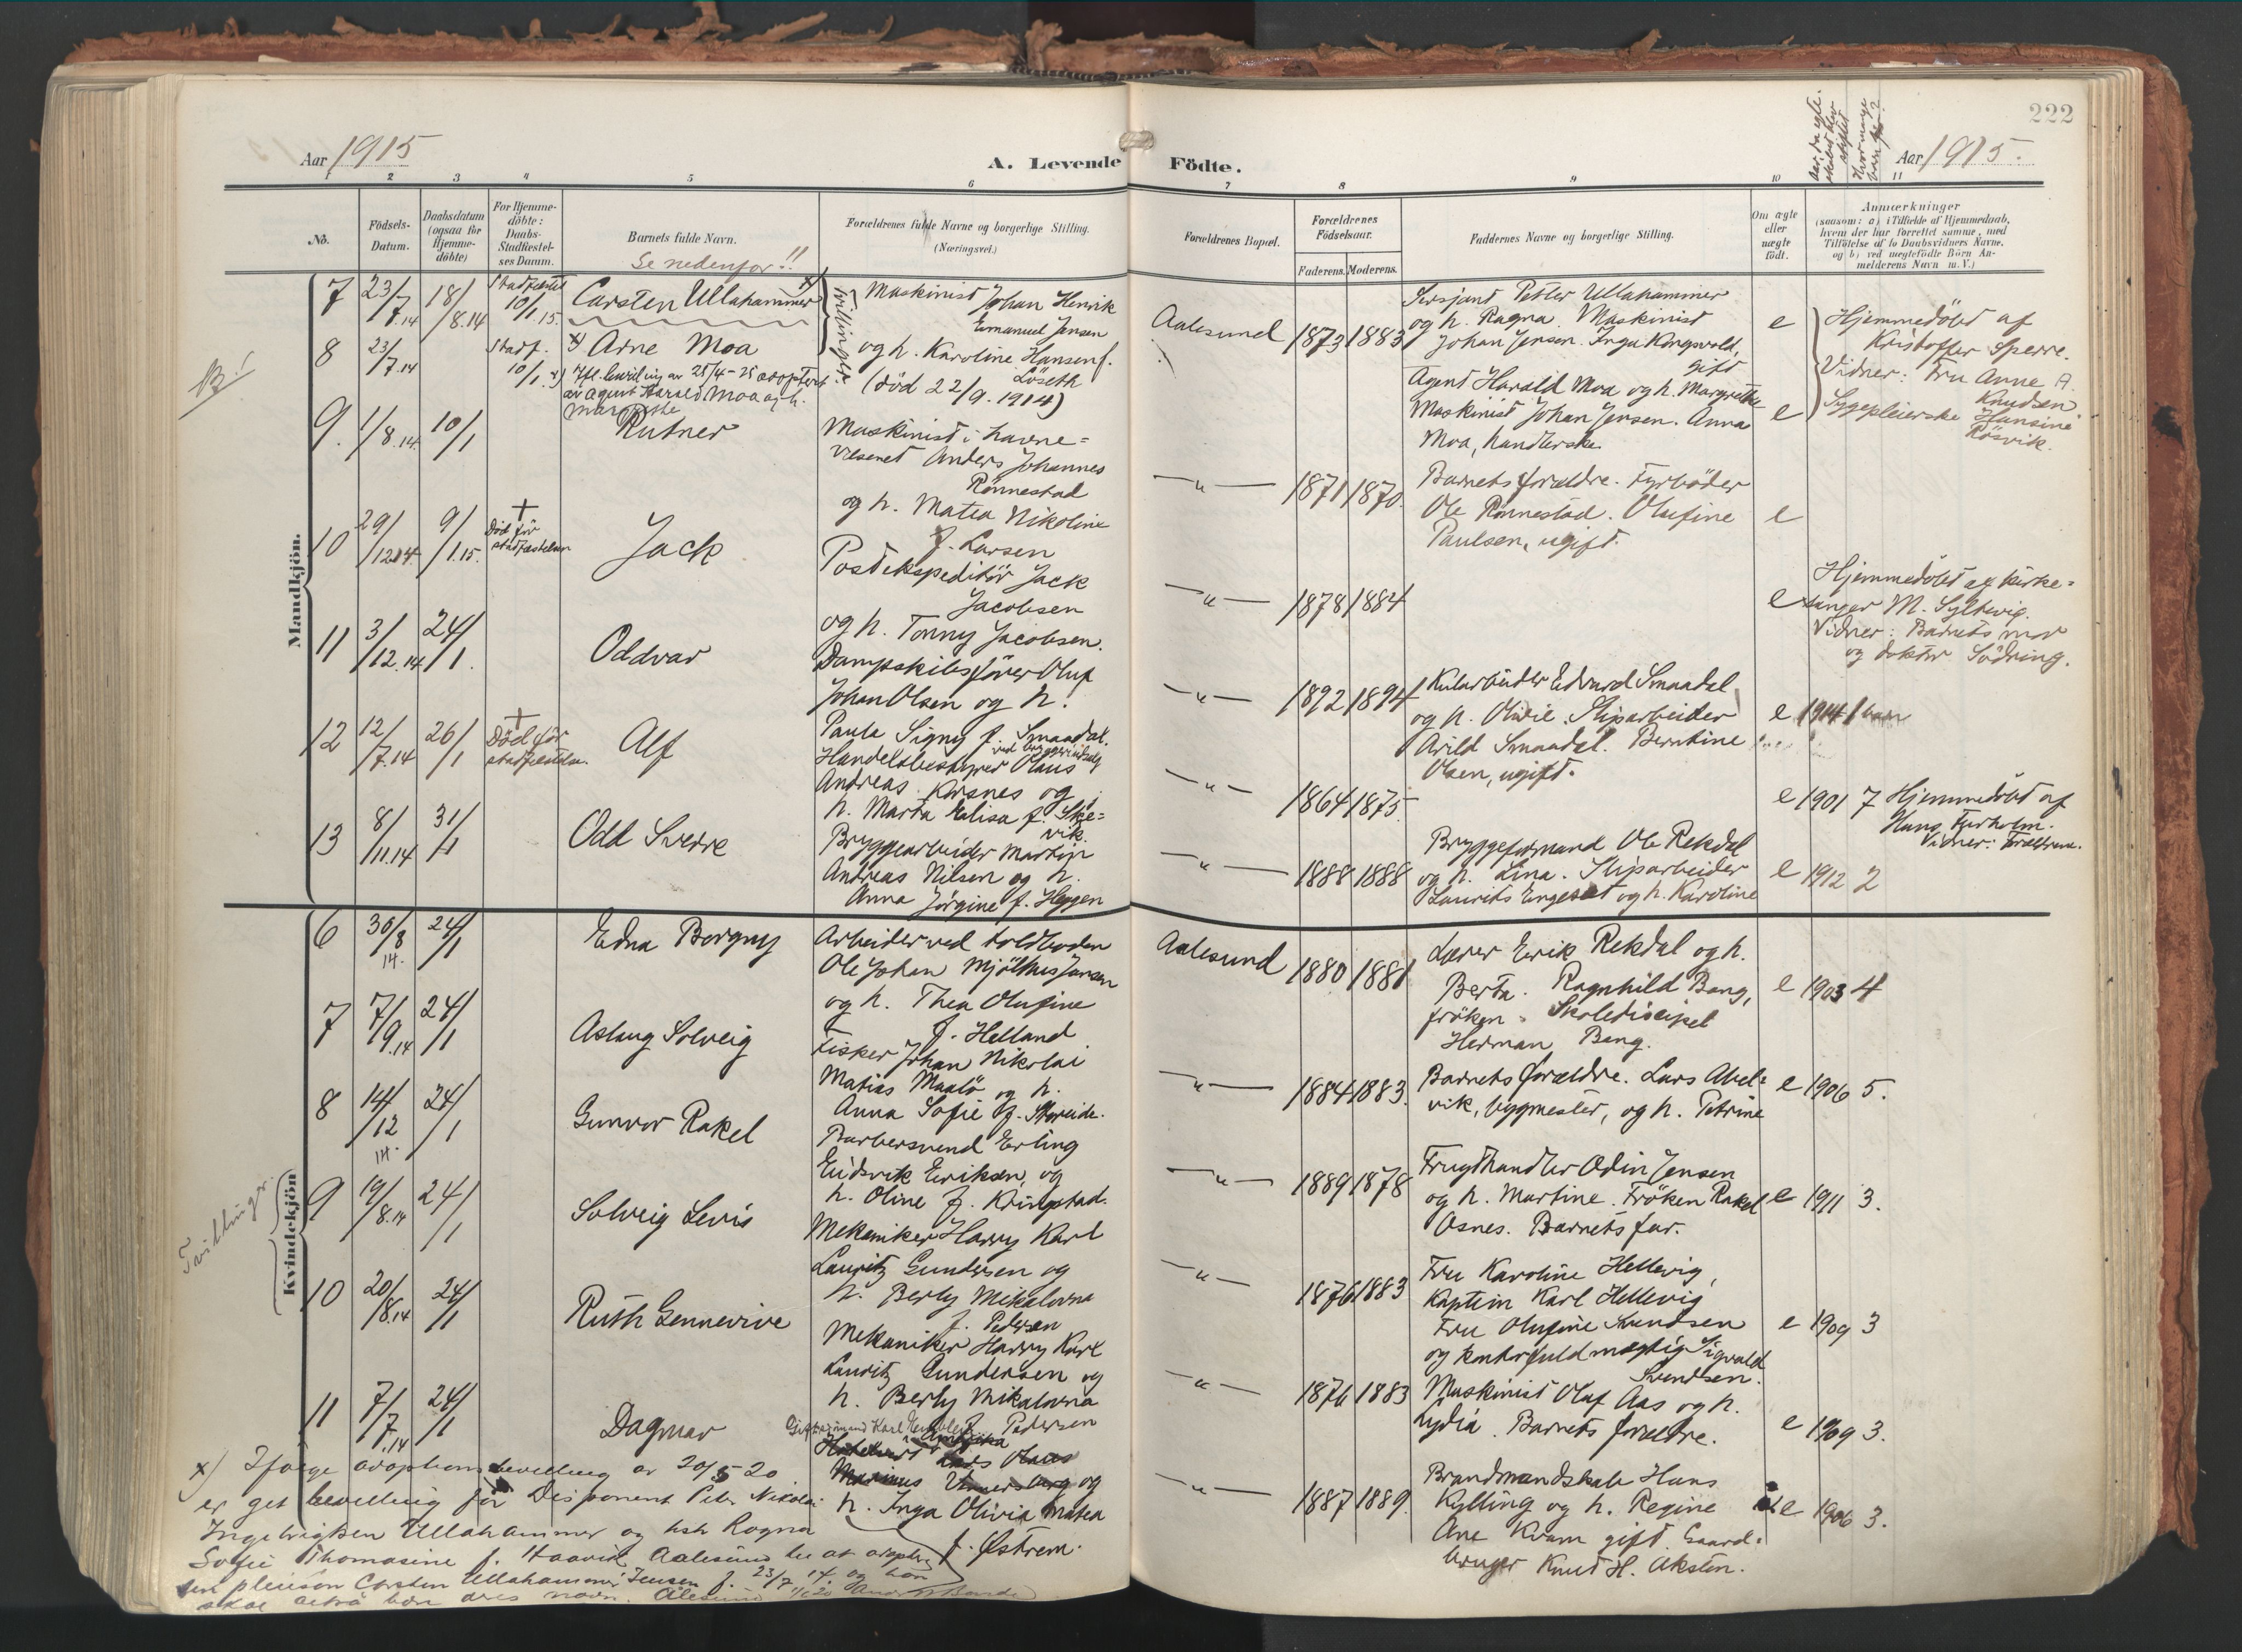 Aar 1915
A. Levende Födte.
222
Aar 1915.
1 2 3 4 5 6 7 8 9 10 11
No.
Födsels-Datum.
Daabsdatum (ogsaa for Hjemme-döbte)
For Hjemme-döbte: Daabs-Stadfæstel-ses Datum.
Barnets fulde Navn.
Se nedenfor!!
Forældrenes fulde Navne og borgerlige Stilling.
(Næringsvei.)
Forældrenes Bopæl.
Forældrenes Födselsaar.
Faderens. Moderens.
Faddernes Navne og borgerlige Stilling.
Om ægte eller uægte födt.
Anmærkninger
(saasom: a) i Tilfælde af Hjemmedaab,
hvem der har forrettet samme, med
Tilföielse af to Daabsvidners Navne,
og b) ved uegtefödte Börn An-
melderens Navn m.V.)
Mandkjön.
7 23/7.14 18/8.14 Stadfæstet 10/1.15. Carsten Ullahammer x)
Tvillinger.
Maskinist Johan Henrik
Emanuel Jensen
og h. Karoline Hansen f.
Löseth
(död 22/9. 1914)
Aalesund 1873 1883
Sersjant Petter Ullahammer
og h. Ragna. Maskinist
Johan Jensen. Inga Kongsvold,
gift
e
Hjemmedöbt af
Kristoffer Sperre.
Vidner: Fru Anne A.
Knudsen
Sygepleierske Hansine
Rösvik.
8 23/7.14 Stadf. 10/1. x) Arne Moa
Ifl. bevilling av 25/4-25 adoptert
av agent Harald Moa og h.
Margrethe
Agent Harald Moa og h. Margrethe
Maskinist Johan Jensen. Anna
Moa, handlerske.
e
9. 1/8.14. 10/1 Rutner
Maskinist i havne-
væsenet Anders Johannes
Rönnestad
og h. Matea Nikoline
f. Larsen
-"- 1871 1870.
Barnets forældre. Fyrböder
Ole Rönnestad. Olufine
Paulsen, ugift.
e
10 29/12.14. 9/1.15. + Död før stadfæstelsen Jack
Postekspeditör Jack
Jacobsen
og h. Tonny Jacobsen.
-"- 1878 1884
e
Hjemmedöbt af kirke-
sanger M. Syltevig.
Vidner: Barnets mor
og doktor Södring.
11 3/12.14 24/1. Oddvar
Dampskibsförer Oluf
Johan Olsen og h.
Paula Signy f. Smaadal.
-"- 1892 1894
Kularbeider Edvard Smaadal
og h. Olivie. Sliparbeider
Arild Smaadal. Berntine
Olsen, ugift.
e 1914 1 barn
12 12/7.14 26/1 + Död för stadfæstelsen. Alf
Handelsbestyrer Olaus
Andreas Korsnes og
h. Marta Elisa f. Ske-
vik.
-"- 1864 1875.
e 1901 7 Hjemmedöbt af
Hans Fyrholm.
Vidner: Forældrene.
13 8/11.14 31/1 Odd Sverre
Bryggearbeider Martin
Andreas Nilsen og h.
Anna Jörgine f. Heggen
-"- 1888 1888
Bryggeformand Ole Rekdal
og h. Lina. Sliparbeider
Laurits Engeset og h. Karoline
e 1912 2
Kvindekjön
6 30/8 14. 24/1 Edna Borgny
Arbeider ved toldboden
Ole Johan Mjölhus Jensen
og h. Thea Olufine
f. Helland
Aalesund 1880 1881
Lærer Erik Rekdal og h.
Berta. Ragnhild Bang,
fröken. Skoledisipel
Herman Bang.
e 1903 4
7 7/9.14 24/1 Aslaug Solveig
Fisker Johan Nikolai
Matias Maalö og h.
Anna Sofie f. Skreide.
-"- 1884 1883.
Barnets forældre. Lars Abel-
vik, bygmester, og h. Petrine
e 1906 5.
8 14/12 14. 24/1 Gunvor Rakel
Barbersvend Erling
Eidsvik Eriksen, og
h. Oline f. Kringstad.
-"- 1889 1878
Frugthandler Odin Jensen
og h. Martine. Fröken Rakel
Osnes. Barnets far.
e 1911 3.
Tvillinger.
9 19/8.14 24/1 Solveig Levis
Mekaniker Harry Karl
Lauritz Gundersen og
h. Berly Mikalovna
f. Pedersen
-"- 1876 1883
Fru Karoline Hellevig,
Kaptein Karl Hellevig
Fru Olufine Svendsen
og kontorfuldmægtig Sigvald
Svendsen.
e 1909 3
10 20/8.14 24/1 Ruth Gennevive
Mekaniker Harry Karl
Lauritz Gundersen og
h. Berly Mikalovna
f. Pedersen
-"- 1876 1883
Maskinist Oluf Aas og h.
Lydia. Barnets forældre.
e 1909 3.
11 7/7.14 24/1 Dagmar
og
h. Inga Olivia Matea
f. Østrem.
-"- 1887 1889.
Brandmandskab Hans
Kylling og h. Regine
Ane Kvam gift. Gaard-
bruger Knut H. Aksten.
e 1906 3.
x) Ifølge adoptionsbevilling av 20/5 20
er get bevilling for Disponent Peter Nikolai
Ingebrigtsen Ullahammer og hstr Ragna
Sofie Thomasine f. Haavik Aalesund til at adoptere
sin pleiesøn Carsten Ullahammer Jensen f. 23/7 14. og han
skal bære deres navn. Ålesund